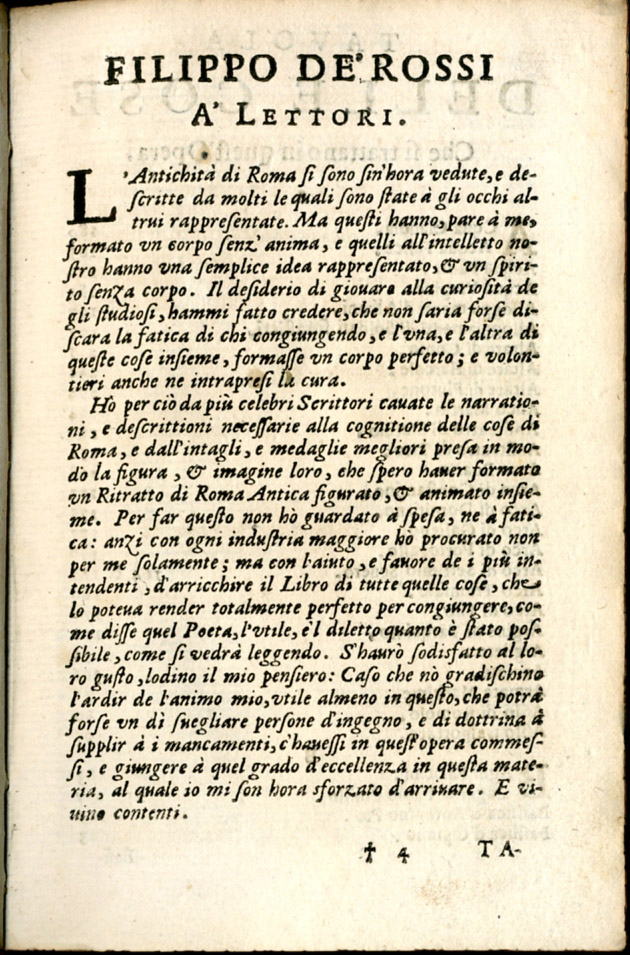 FILIPPO DE' ROSSI
A' LETTORI.
L'Antichità di Roma ſi ſono ſin'hora vedute, e de-
ſcritte da molti le quali ſono ſtate à gli occhi al-
trui rappreſentate. Ma queſti hanno, pare à me,
formato vn corpo ſenz' anima, e quelli all'intelletto no-
ſtro hanno vna ſemplice idea rappreſentato, & vn ſpiri-
to ſenza corpo. Il deſiderio di giouare alla curioſità de
gli ſtudioſi, hammi fatto credere, che non ſaria forſe di-
ſcara la fatica di chi congiungendo, e l'vna, e l'altra di
queſte coſe inſieme, formaſſe vn corpo perfetto; e volon-
tieri anche ne intrapreſi la cura.
Ho per ciò da più celebri Scrittori cauate le narratio-
ni, e deſcrittioni neceſſarie alla cognitione delle coſe di
Roma, e dall'intagli, e medaglie megliori preſa in mo-
do la figura, & imagine loro, che ſpero hauer formato
vn Ritratto di Roma Antica figurato, & animato inſie-
me. Per far queſto non hò guardato à ſpeſa, ne à fati-
ca: anzi con ogni induſtria maggiore hò procurato non
per me ſolamente; ma con l'aiuto, e fauore de i più in-
tendenti, d'arricchire il Libro di tutte quelle coſe, che
lo poteua render totalmente perfetto per congiungere, co-
me diſſe quel Poeta, l'vtile, e'l diletto quanto è ſtato poſ-
ſibile, come ſi vedrà leggendo. S'haurò ſodisfatto al lo-
ro guſto, lodino il mio penſiero: Caſo che nò gradiſchino
l'ardir de l'animo mio, vtile almeno in queſto, che potrà
forſe vn dì ſuegliare perſone d'ingegno, e di dottrina à
ſupplir à i mancamenti, c'haueſſi in queſt'opera commeſ-
ſi, e giungere à quel grado d'eccellenza in queſta mate-
ria, al quale io mi ſon hora sforzato d'arriuare. E vi-
uino contenti.
† 4 TA-